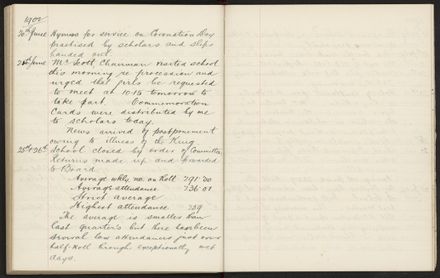 1902
20th June Hymns for service on Coronation Day
practised by scholars and slips
handed out.
24th June Mr Scott Chairman visited school
this morning re procession and
urged that girls be requested
to meet at 10.15 tomorrow to
take part. Commemoration
Cards were distributed by me
to scholars today.
News arrived of postponement
owing to illness of the King
25th & 26th School closed by order of Committee.
Returns made up and forwarded
to Board.
Average whly no. on Roll 791.00
Average attendance 736.01
Strict average
Highest attendance 759
The average is smaller than
last quarter's but there has been
several low attendances just over
half Roll through exceptionally wet
days.